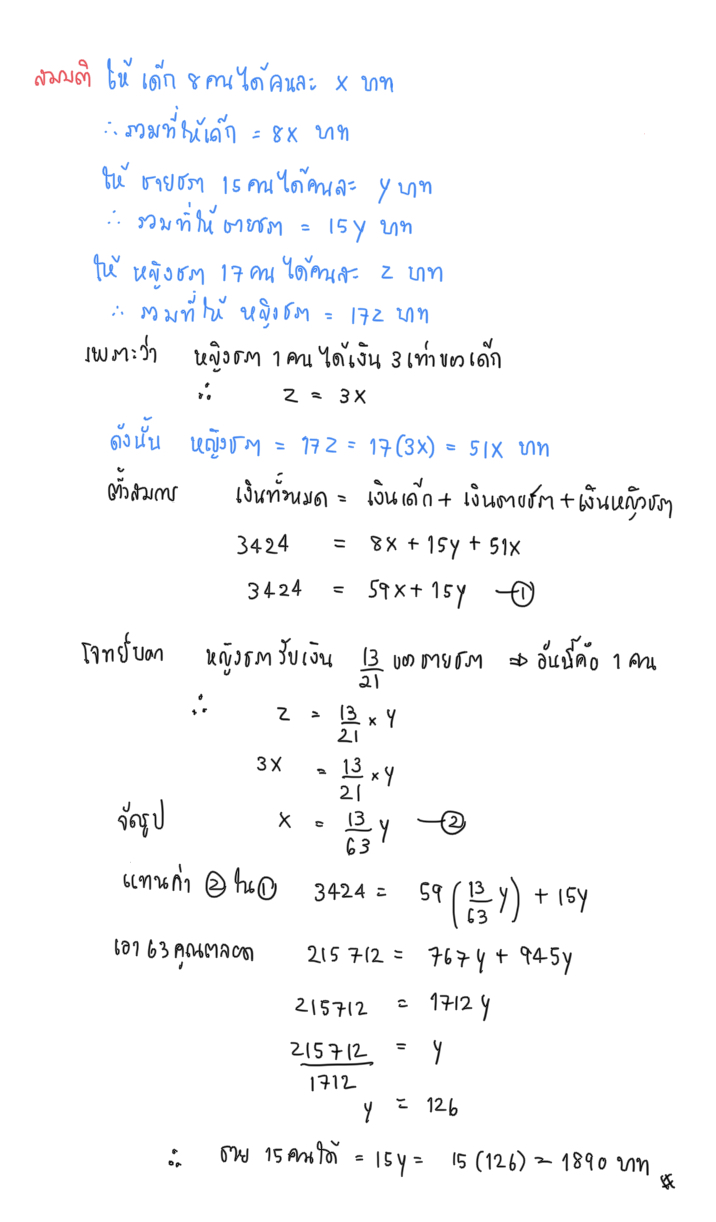 สมมติ ให้ เด็ก 8 คนได้คนละ x บาท
∴ รวมที่ให้เด็ก = 8x บาท
ให้ ชายชรา 15 คนได้คนละ y บาท
∴ รวมที่ให้ ชายชรา = 15y บาท
ให้ หญิงชรา 17 คน ได้คนละ z บาท
∴ รวมที่ ให้ หญิงชรา = 17z บาท
เพราะว่า หญิงชรา 1 คน ได้เงิน 3 เท่าของเด็ก
∴ z = 3x
ดังนั้น หญิงชรา = 17z = 17(3x) = 51x บาท
ตั้งสมการ เงินทั้งหมด = เงินเด็ก + เงินชายชรา + เงินหญิงชรา
3424 = 8x + 15y + 51x
3424 = 59x + 15y —①
โจทย์บอก หญิงชรารับเงิน 13/21 ของชายชรา ⇒ อันนี้คือ 1 คน
∴ z = 13/21 × y
3x = 13/21 × y
จัดรูป x = 13/63 y —②
แทนค่า ② ใน ① 3424 = 59 (13/63 y) + 15y
เอา 63 คูณตลอด 215712 = 767y + 945y
215712 = 1712y
215712/1712 = y
y = 126
∴ ชาย 15 คนได้ = 15y = 15(126) = 1890 บาท